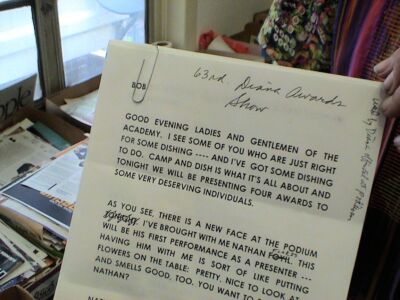 63rd Diana Awards
Show
BOB
GOOD EVENING LADIES AND GENTLEMEN OF THE
ACADEMY. I SEE SOME OF YOU WHO ARE JUST RIGHT
FOR SOME DISHING ---- AND I'VE GOT SOME DISHING
TO DO. CAMP AND DISH IS WHAT IT'S ALL ABOUT AND
TONIGHT WE WILL BE PRESENTING FOUR AWARDS TO
SOME VERY DESERVING INDIVIDUALS.
AS YOU SEE, THERE IS A NEW FACE AT THE PODIUM
I'VE BROUGHT WITH ME NATHAN THIS
WILL BE HIS FIRST PERFORMANCE AS A PRESENTER ---
HAVING HIM WITH ME IS SORT OF LIKE PUTTING
FLOWERS ON THE TABLE: PRETTY, NICE TO LOOK AT
AND SMELLS GOOD, TOO. YOU WANT TO
NATHAN?